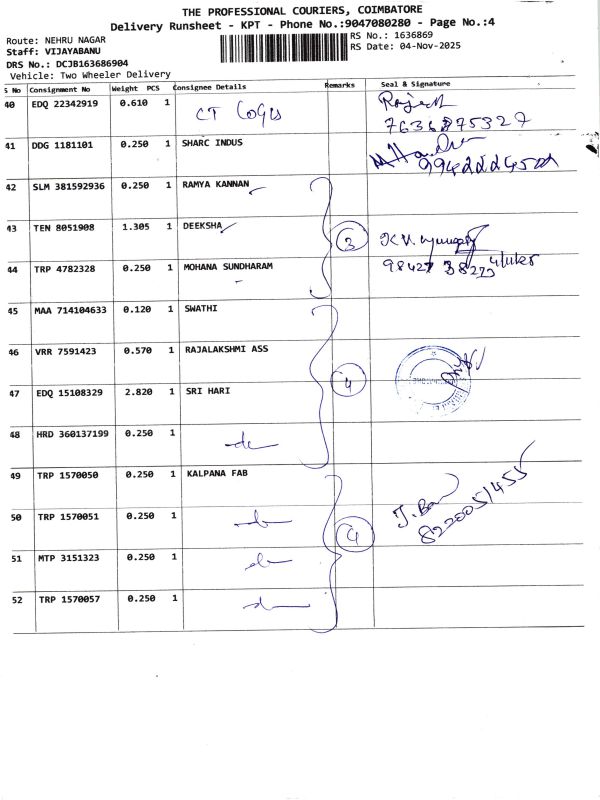 THE PROFESSIONAL COURIERS, COIMBATORE
Delivery Runsheet - KPT - Phone No.:9047080280 - Page No.:4
Route: NEHRU NAGAR
RS No.: 1636869
Staff: VIJAYABANU
RS Date: 04-Nov-2025
DRS No.: DCJB163686904
Vehicle: Two Wheeler Delivery
S No Consignment No Weight PCS Consignee Details Remarks Seal & Signature
40 EDQ 22342919 0.610 1 CT Logis Rajesh
41 DDG 1181101 0.250 1 SHARC INDUS
42 SLM 381592936 0.250 1 RAMYA KANNAN
43 TEN 8051908 1.305 1 DEEKSHA 3
44 TRP 4782328 0.250 1 MOHANA SUNDHARAM
45 MAA 714104633 0.120 1 SWATHI
46 VRR 7591423 0.570 1 RAJALAKSHMI ASS
47 EDQ 15108329 2.820 1 SRI HARI 4
48 HRD 360137199 0.250 1 do
49 TRP 1570050 0.250 1 KALPANA FAB
50 TRP 1570051 0.250 1 do 8220051455
51 MTP 3151323 0.250 1 do
52 TRP 1570057 0.250 1 do